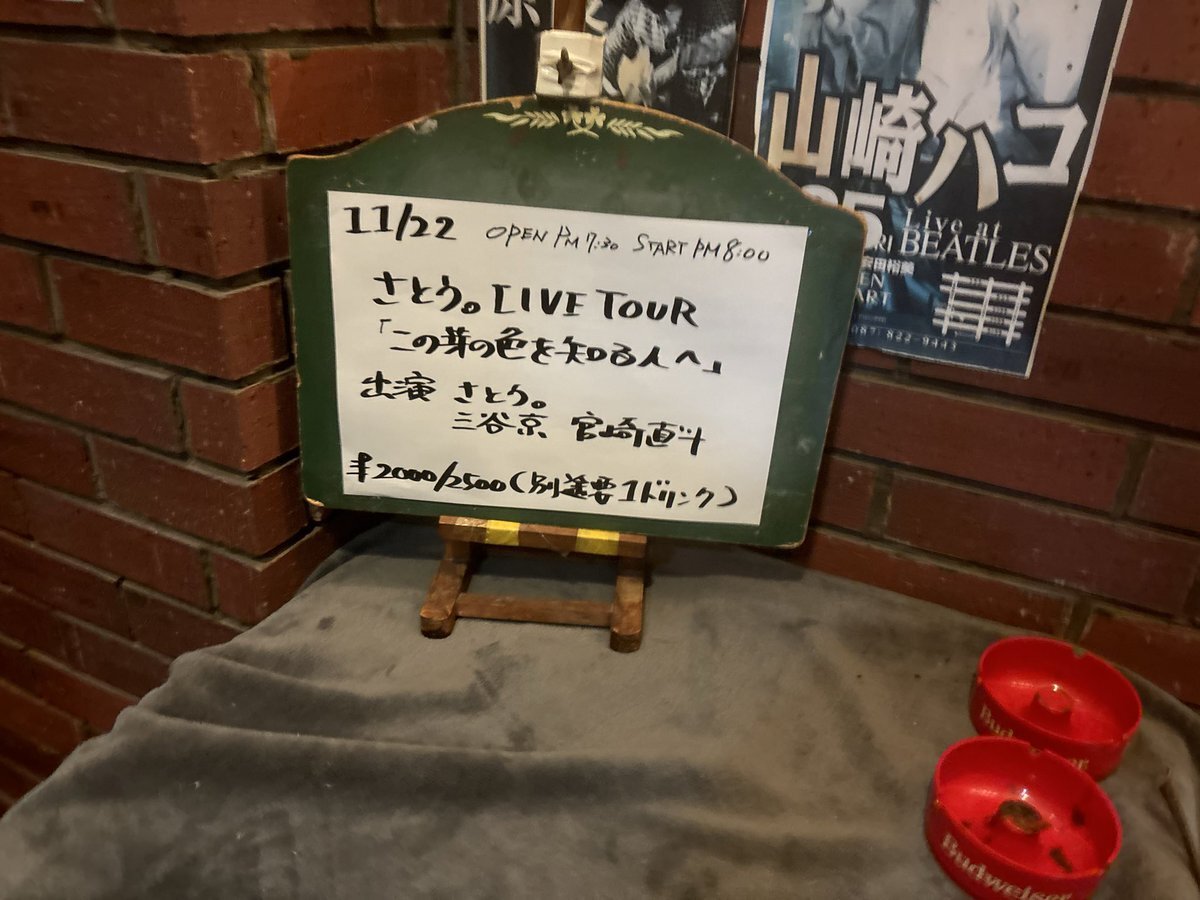 11/22 OPEN PM 7:30 START PM 8:00
さとう。LIVE TOUR
「この芽の色を知る人へ」
出演 さとう。
三谷京 宮崎直斗
¥2000/2500(別途要1ドリンク)
原
山崎ハコ
Live at
BEATLES
087-822-9443
Budweiser
Budweiser